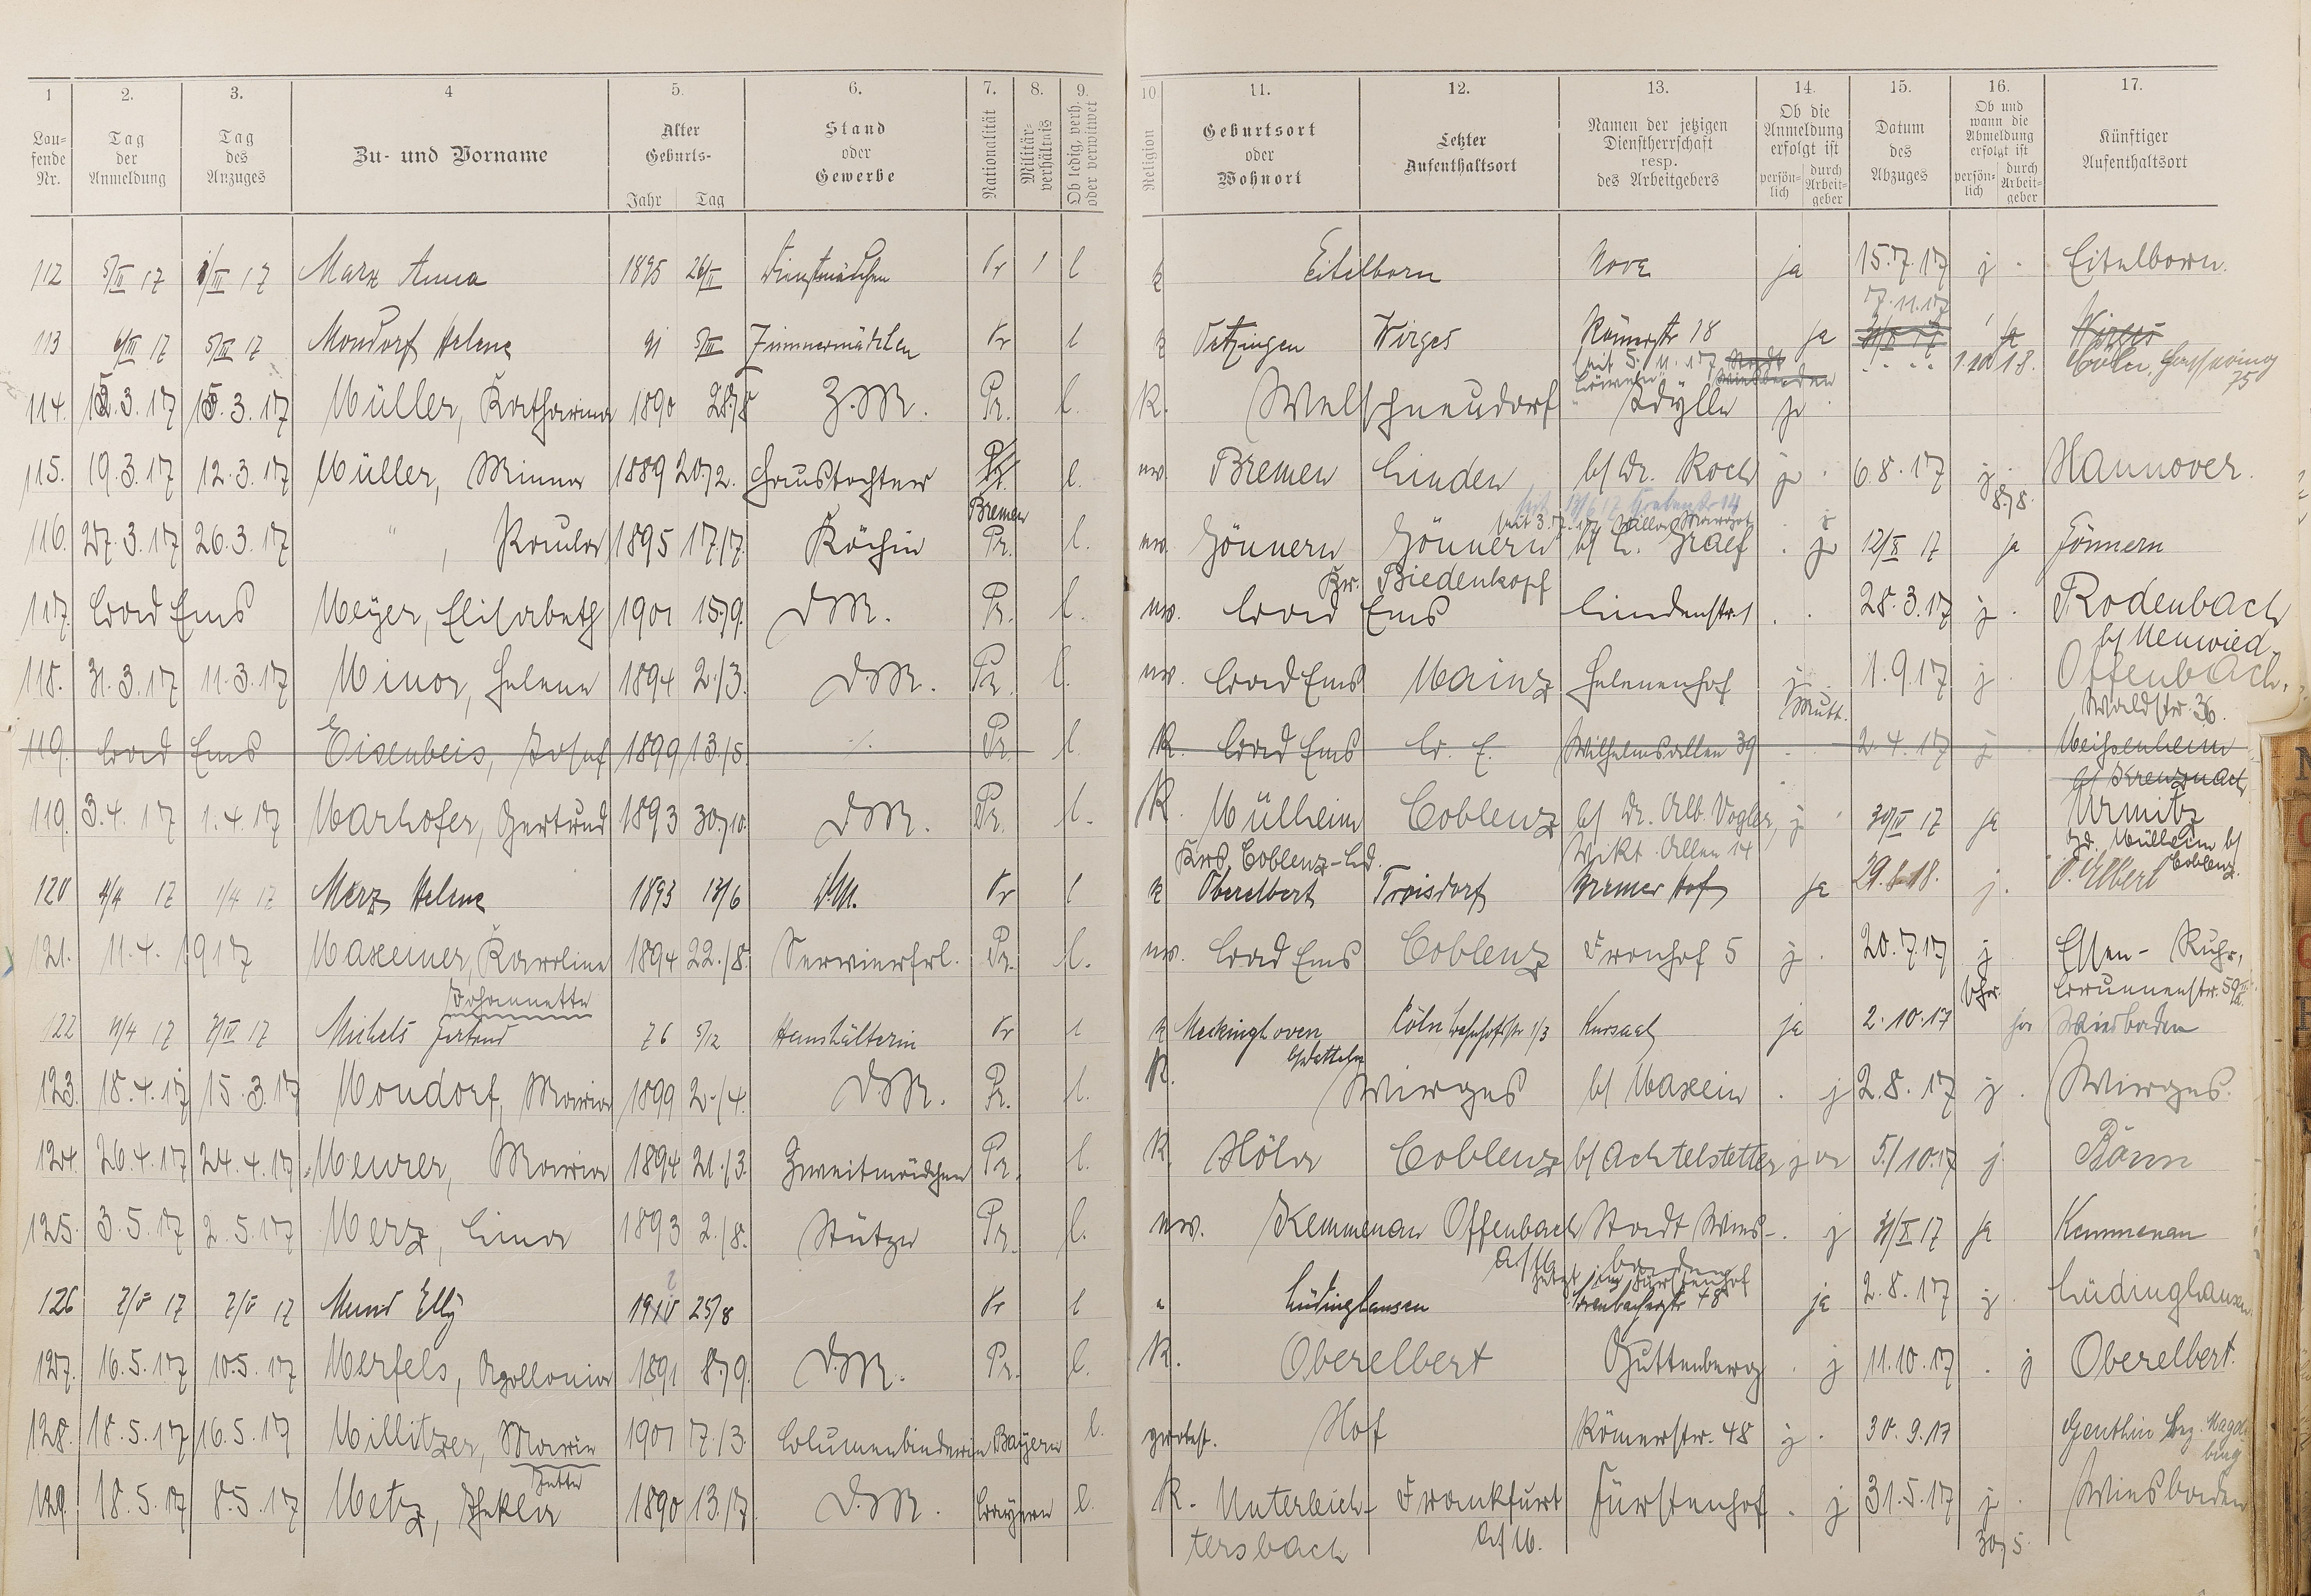 1 2. 3. 4 5. 6. 7. 8. 9. 10. 11. 12. 13. 14. 15. 16. 17.
Lau-
fende
Nr.
Tag
der
Anmeldung
Tag
des
Anzuges
Zu- und Vorname
Alter
Geburts-
Jahr Tag
Stand
oder
Gewerbe
Nationalität
Militär-
verhältnis
Ob ledig, verh.
oder verwitwet
Religion
Geburtsort
oder
Wohnort
Letzter
Aufenthaltsort
Namen der jetzigen
Dienstherrschaft
resp.
des Arbeitgebers
Ob die
Anmeldung
erfolgt ist
persön-
lich
durch
Arbeit-
geber
Datum
des
Abzuges
Ob und
wann die
Abmeldung
erfolgt ist
persön-
lich
durch
Arbeit-
geber
Künftiger
Aufenthaltsort
112 5/III 17 1/III 17 Marx Anna 1895 26/II Dienstmädchen Pr / l k Eitelborn Nove ja 15.7.17 j . Eitelborn.
17.11.17
113 6/III 17 5/III 17 Mondorf Helene 91 5/III Zimmermädchen Pr l k Wirges Römerstr 18 ja ja Wirges
seit 5.11.17 Stadt
Wiesbaden 75
114. 15.3.17 15.3.17 Müller, Katharina 1890 28./5 Z.M. Pr. l. K. Welschneudorf Idylle ja
115. 19.3.17 12.3.17 Müller, Minna 1889 20./2. Haustochter Pr. l. ev. Bremen Linden b/ Dr. Koch j . 6.8.17 j. Hannover.
Bremen 8./8.
seit 3.7.17 Villa Margot
116. 27.3.17 26.3.17 " , Paula 1895 17./7. Köchin Pr. l. ev. Gönnern Gönnern b/ L. Graef . j 12/X 17 ja Gönnern
Kr. Biedenkopf
117. Bad Ems Meyer, Elisabeth 1901 15./9. D.M. Pr. l. ev. Bad Ems Lindenstr. 1 . . 28.3.17 j . Rodenbach
b/ Neuwied.
118. 31.3.17 11.3.17 Minor, Helene 1894 2./3. D.M. Pr. l. ev. Bad Ems Mainz Helenenhof j . 1.9.17 j . Offenbach,
Mutt. Waldstr. 36.
119. Bad Ems Eisenbeis, Josef 1899 13./5. ./. Pr. l. K. Bad Ems B. E. Wilhelmsallee 39 . . 2.4.17 j Meisenheim
b/ Kreuznach
119. 3.4.17 1.4.17 Marhofer, Gertrud 1893 30./10. D.M. Pr. l. K. Mülheim Coblenz b/ Dr. Alb. Vogler, j . 30/IV 17 ja Urmitz
Krs. Coblenz-Ld. Vikt. Allee 14 Mülheim b/
Coblenz.
120 4/4 17 1/4 17 Merz Helene 1893 13/6 D.M. Pr l k Oberelbert Troisdorf Bremer Hof ja 29.6.18. j. O. Elbert
121. 11.4.1917 Maxeiner, Karoline 1894 22./8. Servierfrl. Pr. l. ev. Bad Ems Coblenz Fronhof 5 j . 20.7.17 j Essen-Ruhr,
Brunnenstr. 59
Johannette
122 11/4 17 7/IV 17 Michels Gertrud 76 5/12 Haushälterin Pr l k Meckinghoven Cöln Bahnhofstr 1/3 Kursaal ja 2.10.17 ja Wiesbaden
b/Datteln
123. 18.4.17 15.3.17 Mondorf, Maria 1899 2./4. D.M. Pr. l. K. Wirges b/ Maxein . j 2.8.17 j . Wirges.
124. 26.4.17 24.4.17 Meurer, Maria 1894 21./3. Zweitmädchen Pr. l. K. Höhr Coblenz b/ Achtelstetter j 5./10.17 j Bonn
125. 3.5.17 2.5.17 Merz, Lina 1893 2./8. Stütze Pr. l. ev. Kemmenau Offenbach Stadt Wies- . j 31/X 17 ja Kemmenau
a/M. baden
jetzt im Fürstenhof
126 7/V 17 7/V 17 Mund Elly 25/8 Pr l " Lüdinghausen 48 ja 2.8.17 j . Lüdinghausen.
127. 16.5.17 10.5.17 Merfels, Apollonia 1891 8./9. D.M. Pr. l. K. Oberelbert Guttenberg . j 11.10.17 . j Oberelbert.
128. 18.5.17 16.5.17 Millitzer, Marie 1901 7./3. Blumenbinderin Bayern l. protest. Hof Römerstr. 48 j . 30.9.17 Genthin Bez. Magde-
burg
Jette
129. 18.5.17 8.5.17 Metz, Thekla 1890 13./7. D.M. Bayern l. K. Unterleich- Frankfurt Fürstenhof . j 31.5.17 j . Wiesbaden
tersbach a/M. 30./5.